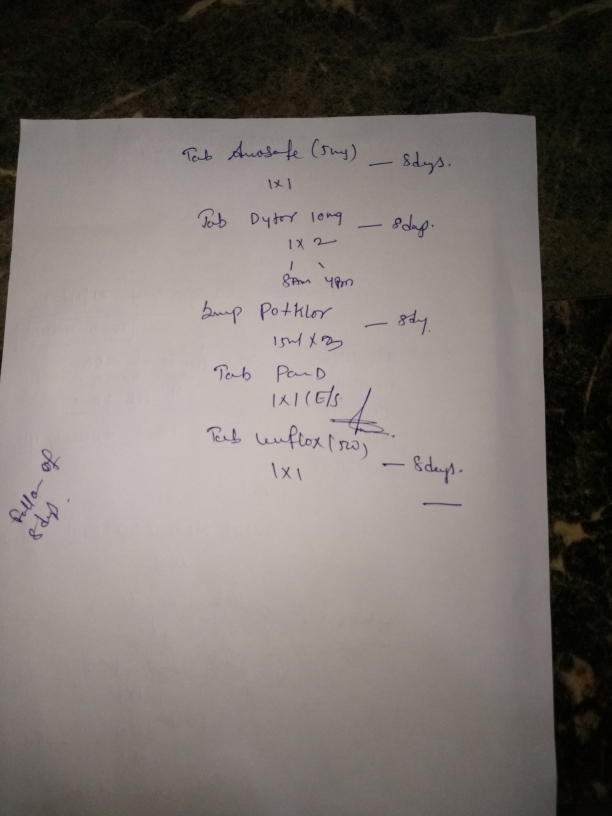 Tab Amosafe (5mg) — 8dys.
1x1
Tab Dytor 10mg — 8dys.
1 x 2
8Am 4pm
Syrup Potklor — 8dy.
15ml x
Tab Pan D
1x1 (E/S
Tab (500) — 8days.
1x1
Follow up
8dys.